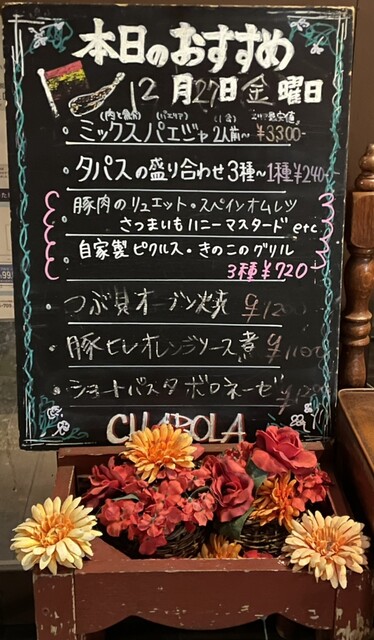 本日のおすすめ
12月27日金曜日
・ミックスパエジャ 2人前〜 ¥3300
・タパスの盛り合わせ3種〜1種¥240
豚肉のリュエット・スペインオムレツ
さつまいもハニーマスタード etc
自家製ピクルス・きのこのグリル
3種¥720
・つぶ貝オーブン焼
・豚ヒレオレンジソース煮 ¥1100
・ショートパスタボロネーゼ
CHABOLA